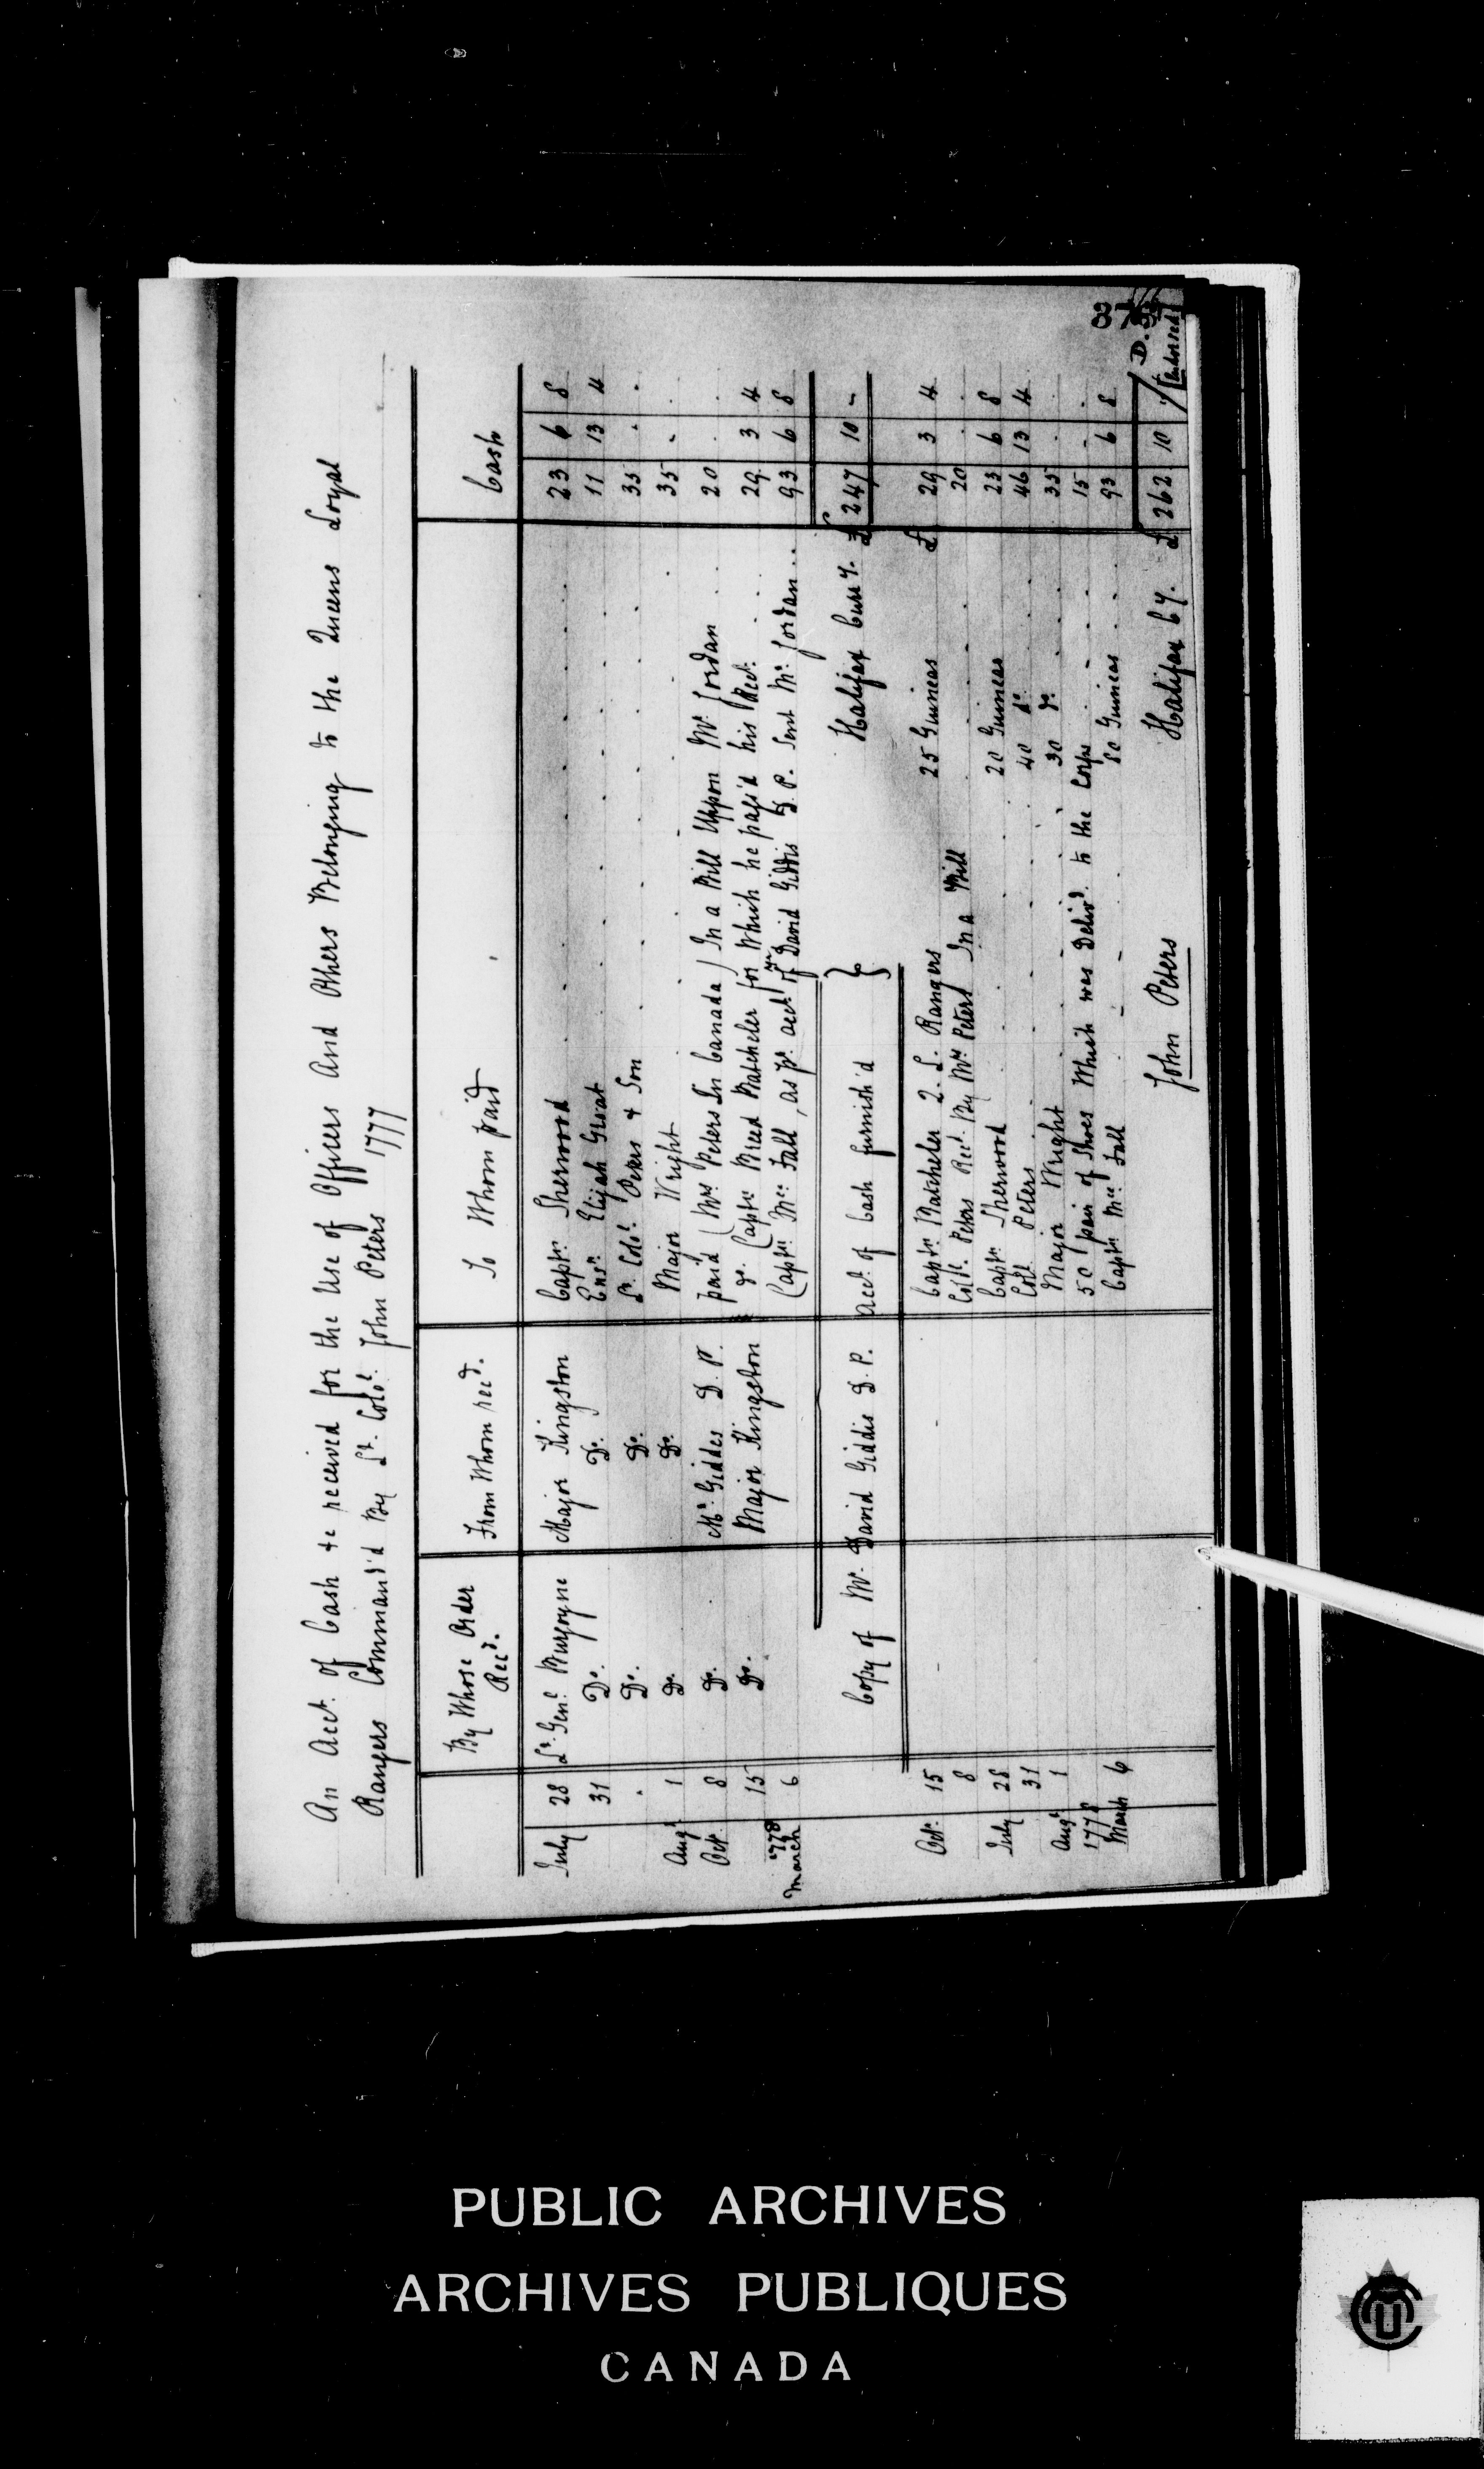 An Acct. of Cash &c received for the Use of Officers And Others Belonging to the Queens Loyal
Rangers Command'd By Lt. Colol. John Peters 1777
By Whose Order Rec'd. From Whom rec'd. To Whom paid Cash
July 28 Lt. Genl. Burgoyne Major Kingston Captn. Sherwood 23 6 8
31 Do. Do. Ensn. Elijah Groat 11 13 4
. Do. Do. Lt. Colol. Peters & Son 35 . .
Augt. 1 Do. Do. Major Wright 35 . .
Oct. 8 Do. Mr. Giddes D. P. paid (Mrs. Peters In Canada) In a Bill Uppon Mr. Jordan 20 . .
15 Do. Major Kingston do. Captn. Breed Batcheler for Which he pass'd his Rect. 29 3 4
1778 March 6 Captn. Mcc. Fall, as pr. acct. of Mr. David Giddis D. P. Sent Mr. Jordan 93 6 8
Halifax Curr'y. £ 247 10 -
Copy of Mr. David Giddis D. P. Acct. of Cash furnish'd
Octr. 15 Captn. Batcheler Q. L. Rangers 25 Guineas £ 29 3 4
8 Coll. Peters Rec'd. By Mrs. Peters In a Bill 20 . .
July 28 Captn. Sherwood 20 Guineas 23 6 8
31 Coll. Peters 40 do. 46 13 4
Augt. 1 Major Wright 30 do. 35 . .
1778 50 pair of Shoes Which was Deliv'd. to the Corps 15 - .
March 6 Captn. Mcc. Fall 80 Guineas 93 6 8
John Peters Halifax Cy. £ 262 10
Endorsed
PUBLIC ARCHIVES
ARCHIVES PUBLIQUES
CANADA